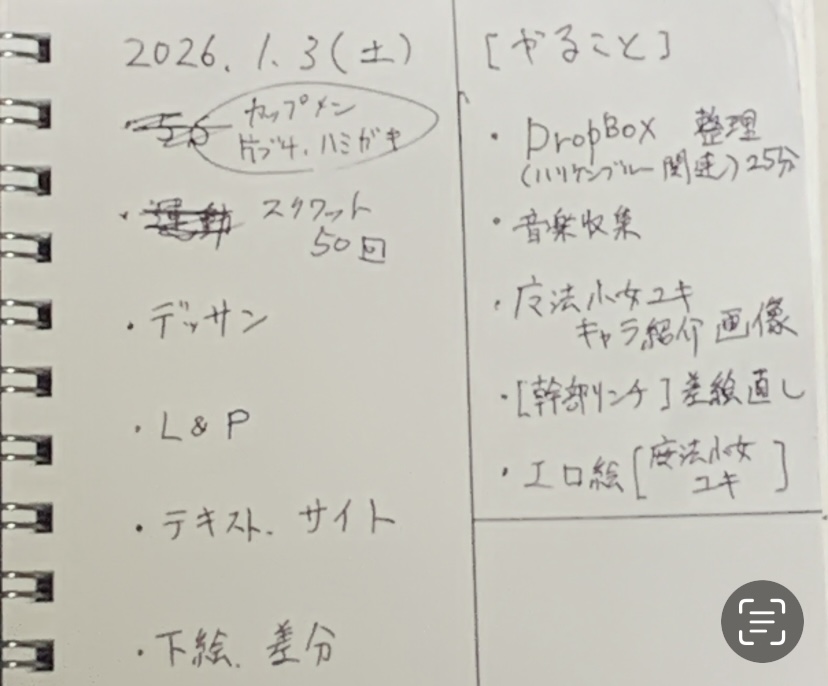 2026.1.3(土)
カップメン
片づけ、ハミガキ
・運動 スクワット
50回
・デッサン
・L&P
・テキスト、サイト
・下絵、差分
[やること]
・DropBox 整理
(ハリケンブルー関連)25分
・音楽収集
・魔法少女ユキ
キャラ紹介画像
・[幹部リンチ]差絵直し
・エロ絵[魔法少女
ユキ]